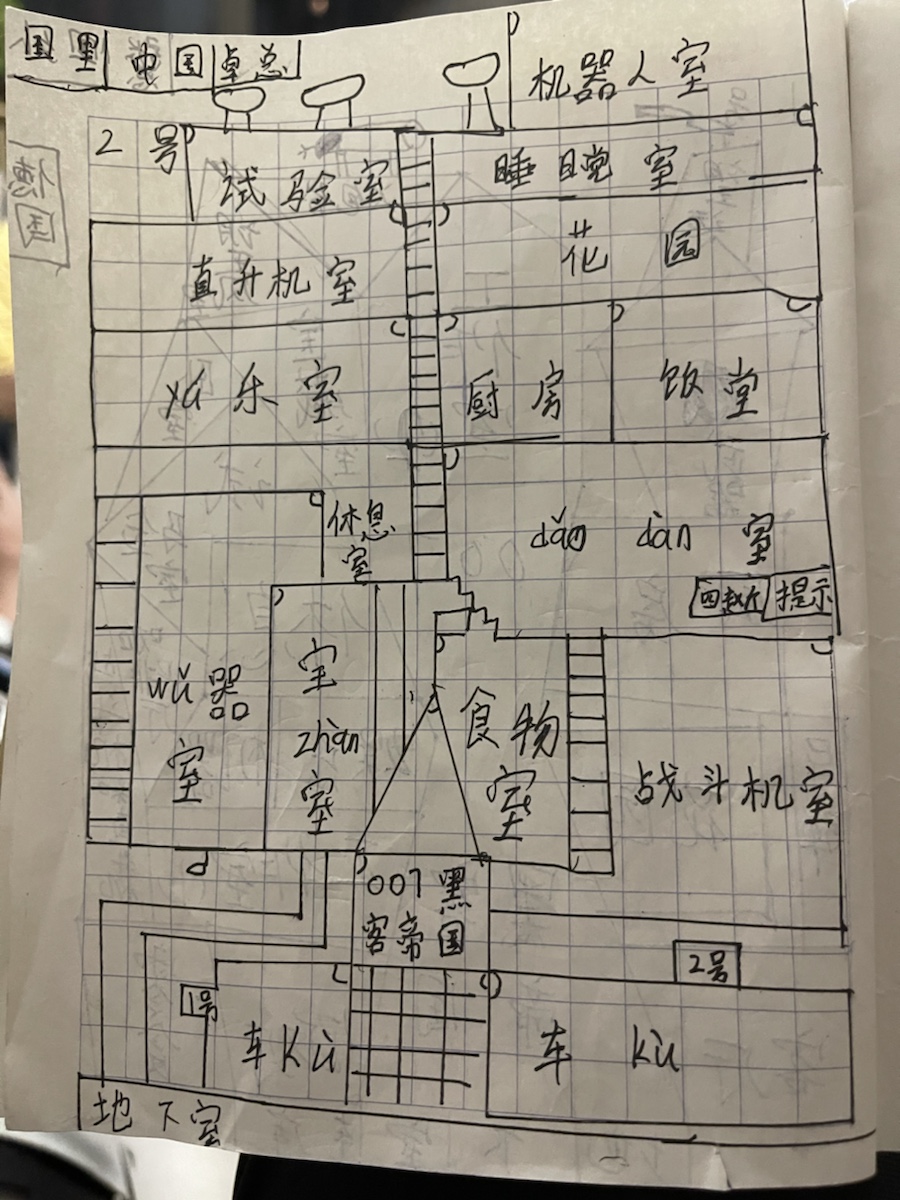 国 里 中 国 卓 总
机器人室
2 号
试 验 室
睡 目觉 室
德国
直 升 机 室
花 园
yú 乐 室
厨 房
饭 堂
休息
室
dǎn dàn 室
提示
wǔ 器
室
zhàn
室
食 物
室
战 斗 机 室
007 黑
客 帝 国
2号
1号
车 Kù
车 Kù
地 下 室